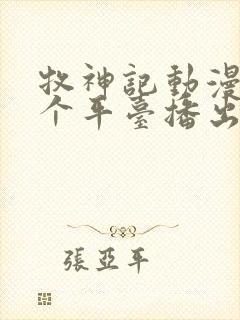 牧神記動漫
个平臺播出
張亞平